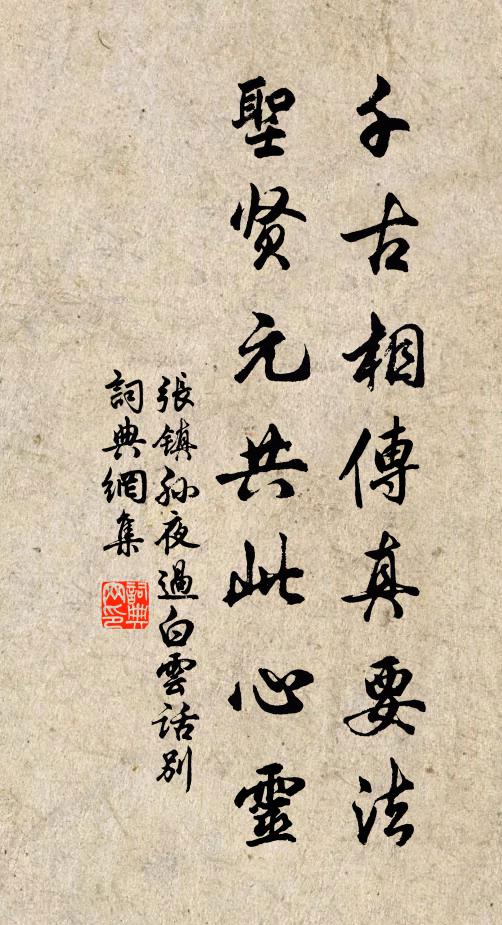 千古相傳真要法
聖贤元共此心靈
張鎮孫夜過白雲話別
詞典網集
詞典网印